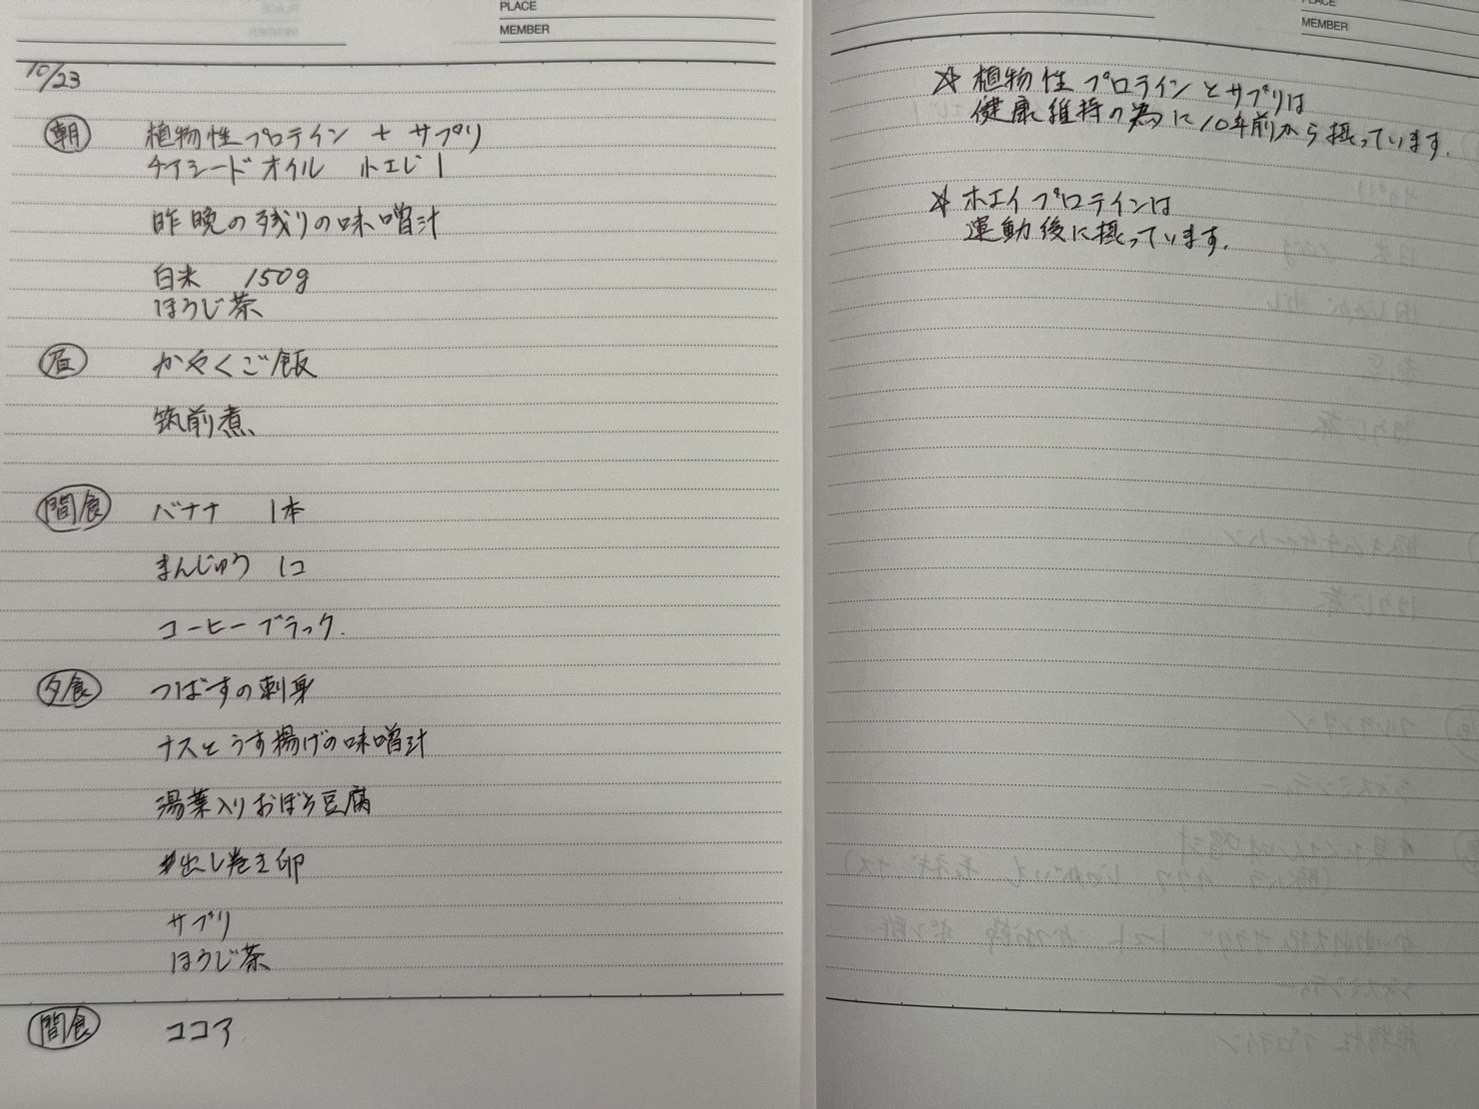 PLACE
MEMBER
10/23
朝 植物性プロテイン + サプリ
チアシードオイル 小さじ1
昨晩の残りの味噌汁
白米 150g
ほうじ茶
昼 かやくご飯
筑前煮
間食 バナナ 1本
まんじゅう 1コ
コーヒーブラック.
夕食 つばすの刺身
ナスとうす揚げの味噌汁
湯葉入りおぼろ豆腐
出し巻き卵
サプリ
ほうじ茶
間食 ココア
PLACE
MEMBER
☆ 植物性プロテインとサプリは
健康維持の為に10年前から摂っています.
☆ ホエイプロテインは
運動後に摂っています.